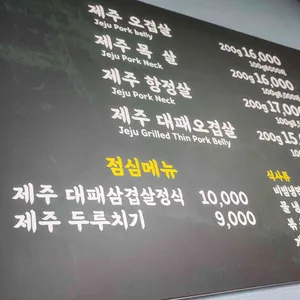 제주 오겹살 200g 16,000
Jeju Pork belly
제주 목 살 200g 16,000
Jeju Pork Neck
제주 항정살 200g 17,000
Jeju Pork Neck
제주 대패오겹살 200g 15,
Jeju Grilled Thin Pork Belly
점심메뉴
제주 대패삼겹살정식 10,000
제주 두루치기 9,000
식사류